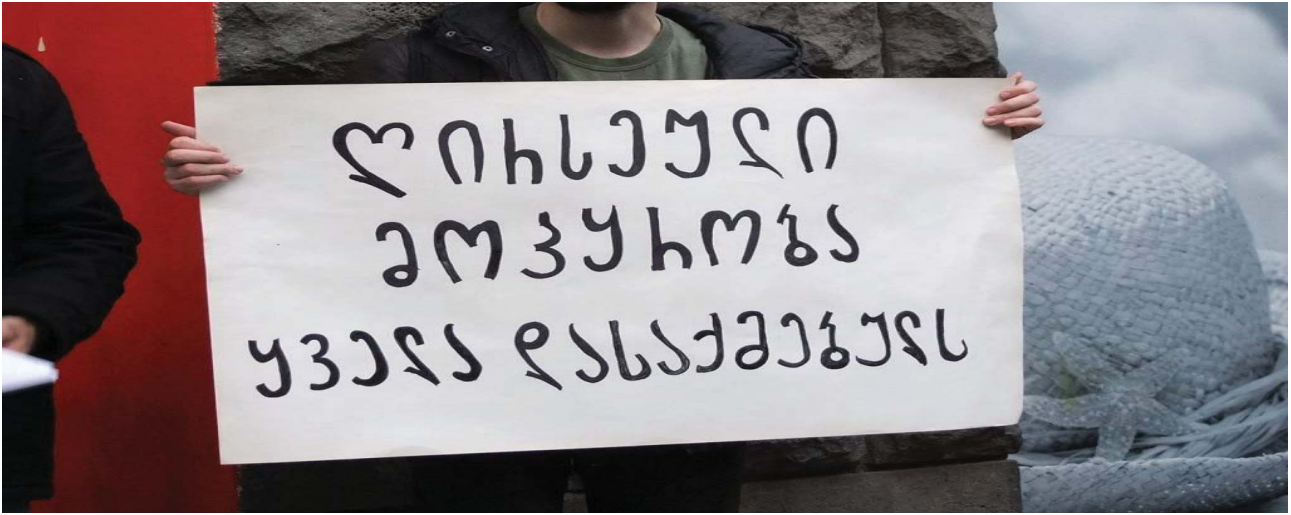 ღირსეული
მოპყრობა
ყველა დასაქმებულს